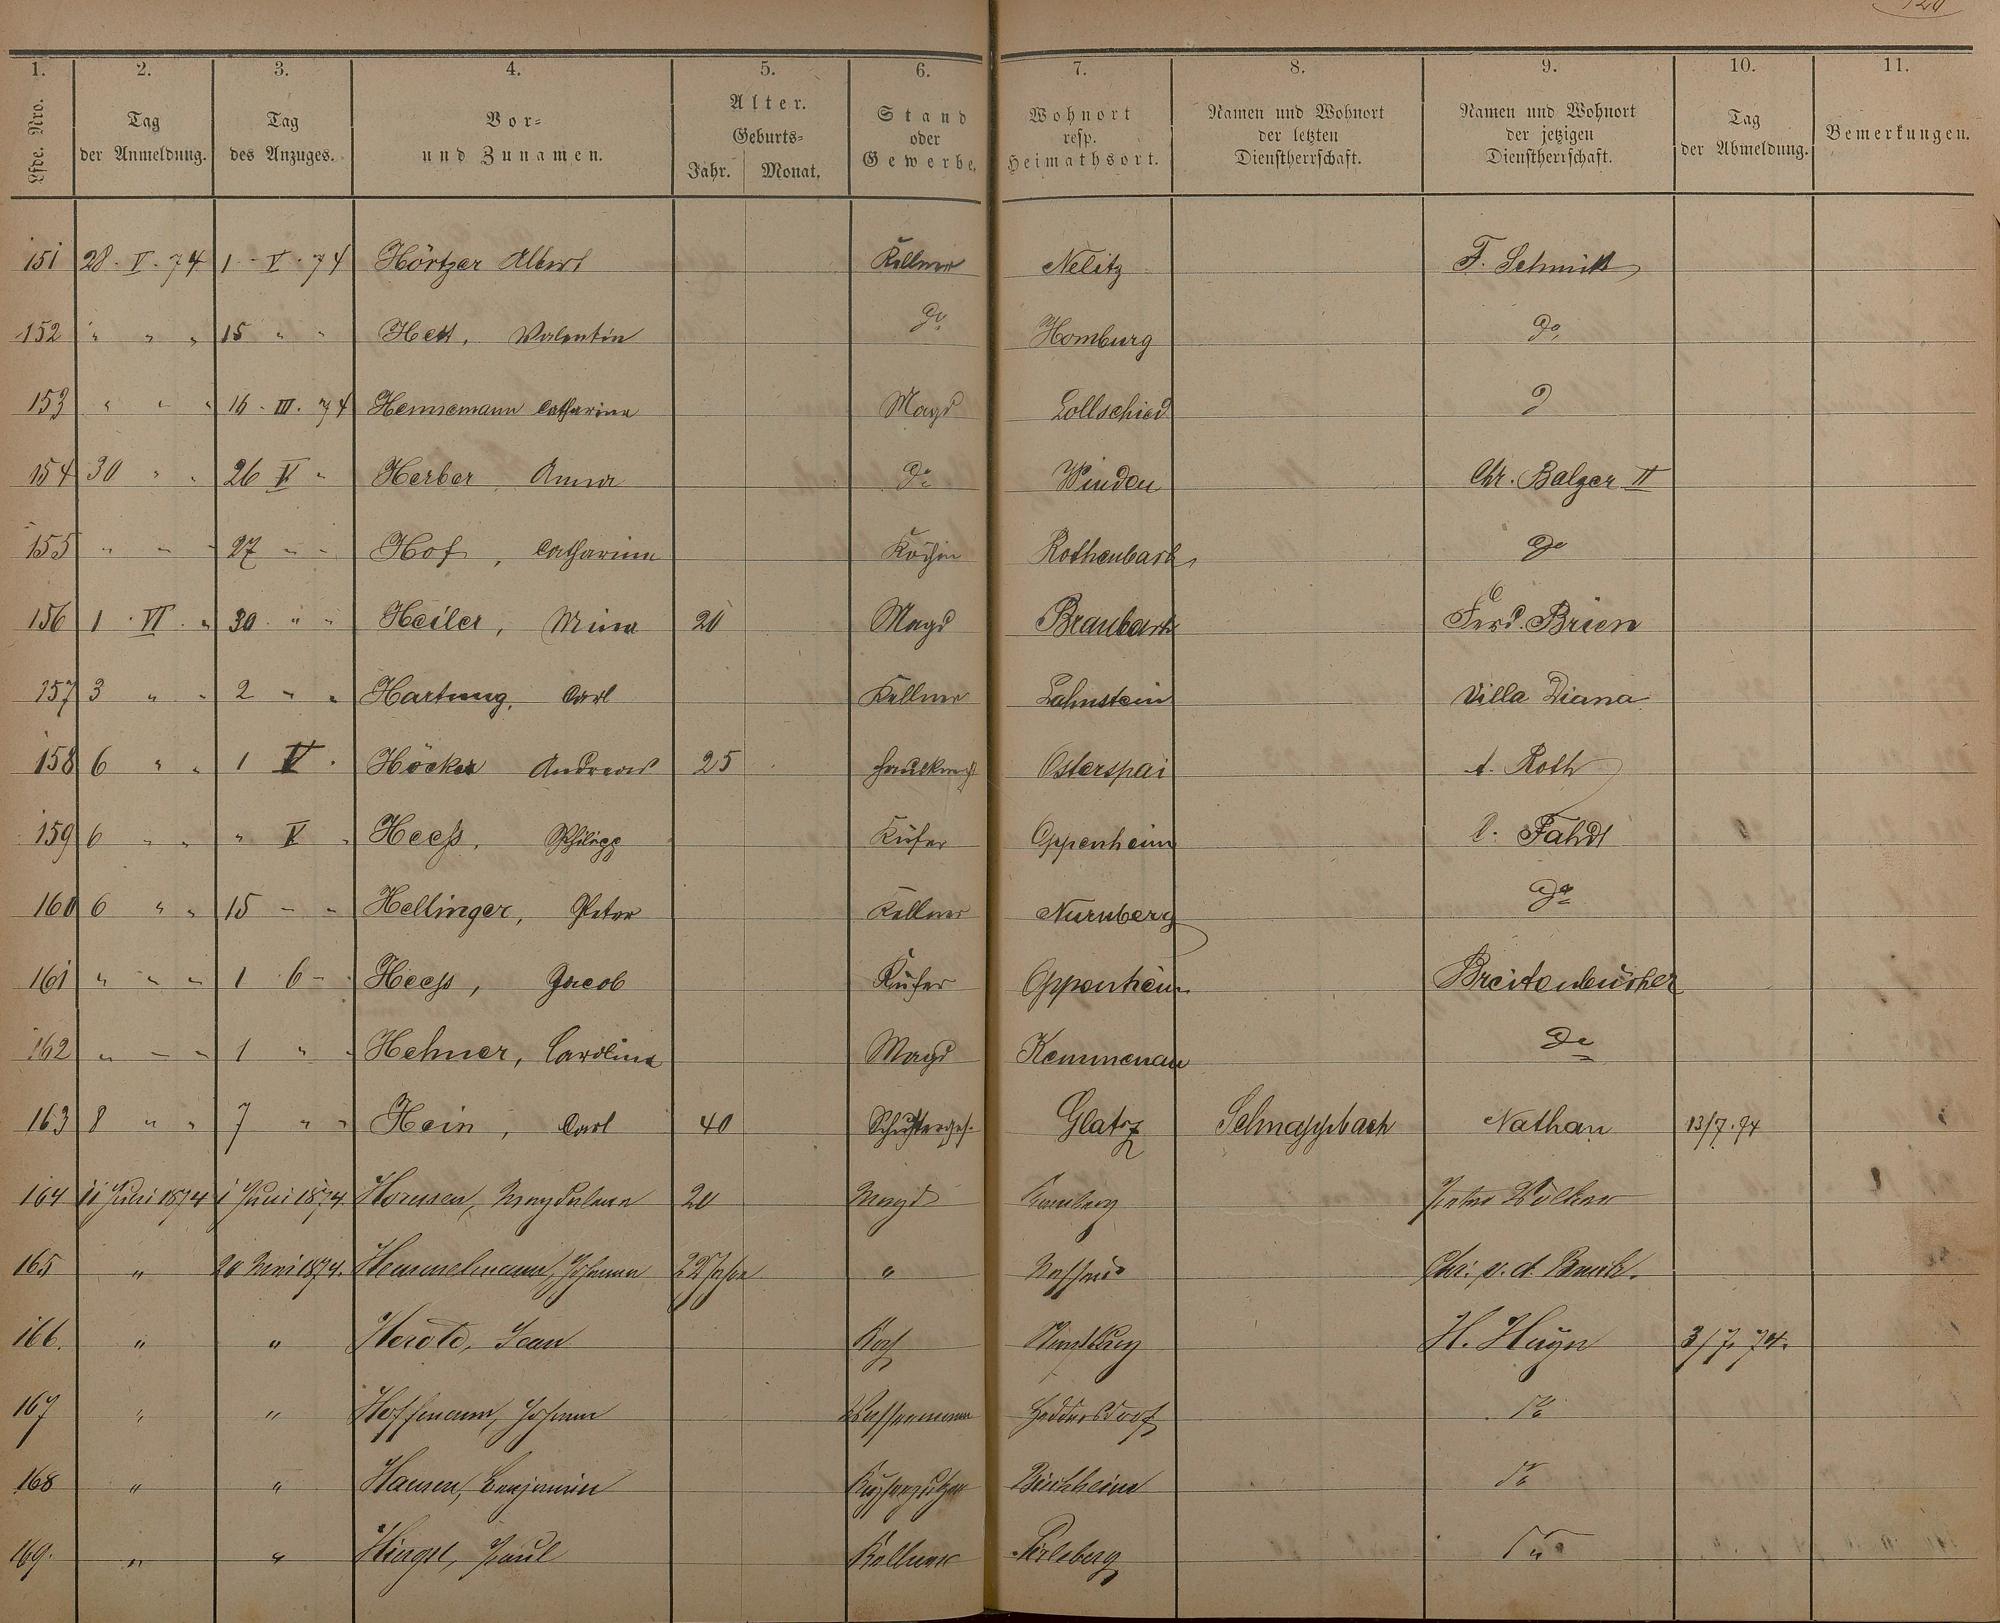 1. 2. 3. 4. 5. 6. 7. 8. 9. 10. 11.
Lfde. Nro. Tag der Anmeldung. Tag des Anzuges. Vor- und Zunamen. Alter. Geburts- Jahr. Monat. Stand oder Gewerbe. Wohnort resp. Heimathsort. Namen und Wohnort der letzten Dienstherrschaft. Namen und Wohnort der jetzigen Dienstherrschaft. Tag der Abmeldung. Bemerkungen.
151 28. V. 74 1 - V. 74 Hörtzer Albert Kellner Nelitz F. Schmitt
152 " " " 15 " " Hett, Valentin do Homburg do
153 " " " 16 - III. 74 Hennemann Catharina Magd Lollschied d
154 30 " " 26 V " Herber Anna do Winden Chr. Balzer II
155 " " " 27 " " Hof, Catharina Köchin Rothenbach do
156 1. VI. " 30 " " Heiler, Mina 20 Magd Braubach Ferd. Brien
157 3 " " 2 " " Hartung, Carl Kellner Lahnstein Villa Diana
158 6 " " 1 V. Höcker Andreas 25 Hausknecht Osterspai A. Roth
159 6 " " " V " Heeß, Philipp Küfer Oppenheim C. Fahdt
160 6 " " 15 - " Hellinger, Peter Kellner Nürnberg do
161 " " " 1 6 - Heeß, Jacob Küfer Oppenheim Breitenbücher
162 " - " 1 " " Hehner, Carolina Magd Kemmenau do
163 8 " " 7 " " Hein, Carl 40 Schusterges. Glatz Schnappbach Nathan 13/7.74
164 11 Juni 1874 1 Juni 1874 Hornsen, Magdalena 20 Magd Peter Völker
165 " 20 Mai 1874. Hemmelmann, Johanna 22 Jahre " Nassau Chr. v. d. Bruch.
166. " " Herold, Jean Koch H. Hayn 3/7. 74.
167 " " Hoffmann, Johann Wassermann Heddersdorf do
168 " " Hansen, Benjamin Kupferputzer do
169. " " Paul Kellner Perleberg do